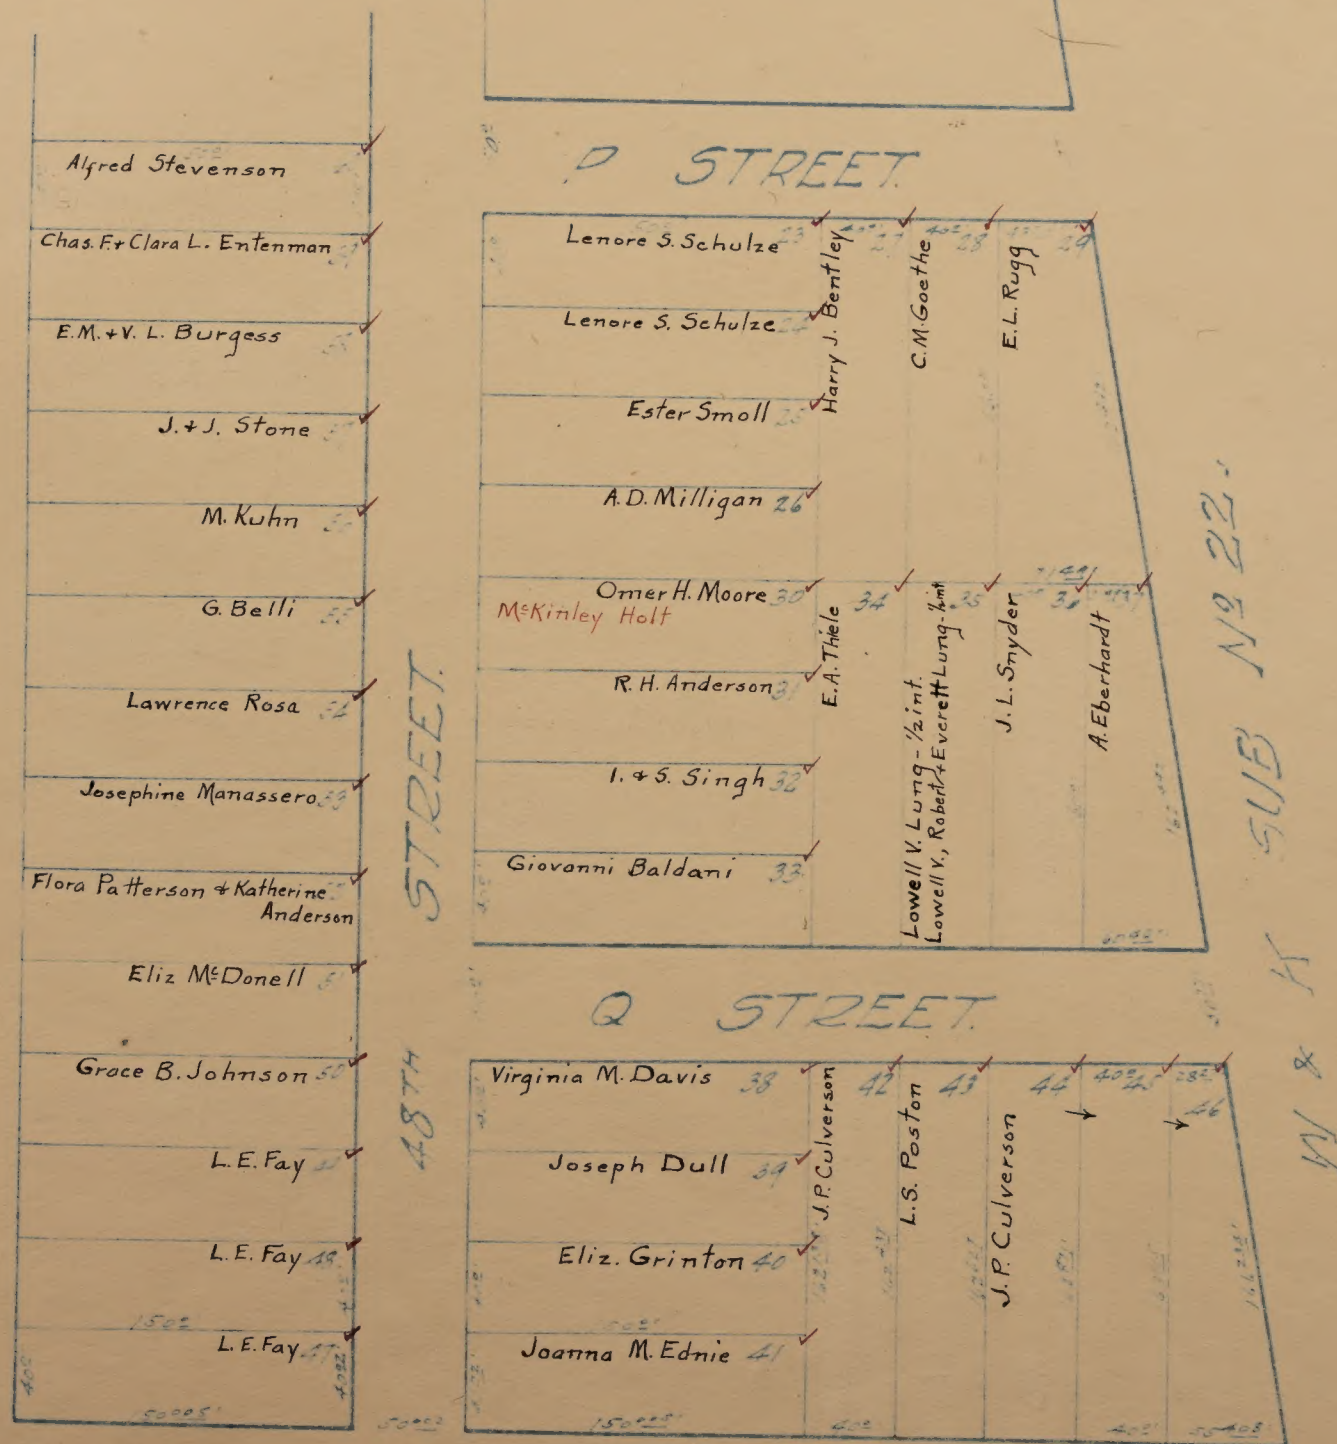 P STREET.
Alfred Stevenson
Chas. F. + Clara L. Entenman
E.M. + V. L. Burgess
J. + J. Stone
M. Kuhn
G. Belli 55
Lawrence Rosa 54
Josephine Manassero 53
Flora Patterson + Katherine
Anderson
Eliz McDonell 51
Grace B. Johnson 50
L. E. Fay
L. E. Fay 48
L. E. Fay 47
150
40
150
50
48TH STREET.
Lenore S. Schulze 23
Lenore S. Schulze 24
Ester Smoll 25
A. D. Milligan 26
Harry J. Bentley 27
C. M. Goethe 28
E. L. Rugg 29
Omer H. Moore 30
McKinley Holt
R. H. Anderson 31
I. & S. Singh 32
Giovonni Baldani 33
E. A. Thiele 34
Lowell V. Lung - 1/2 int.
Lowell V., Robert + Everett Lung - 1/2 int
35
J. L. Snyder 36
A. Eberhardt
Q STREET.
Virginia M. Davis 38
Joseph Dull 39
Eliz. Grinton 40
Joanna M. Ednie 41
J. P. Culverson 42
L. S. Poston 43
J. P. Culverson 44
45
46
W & K SUB No 22.